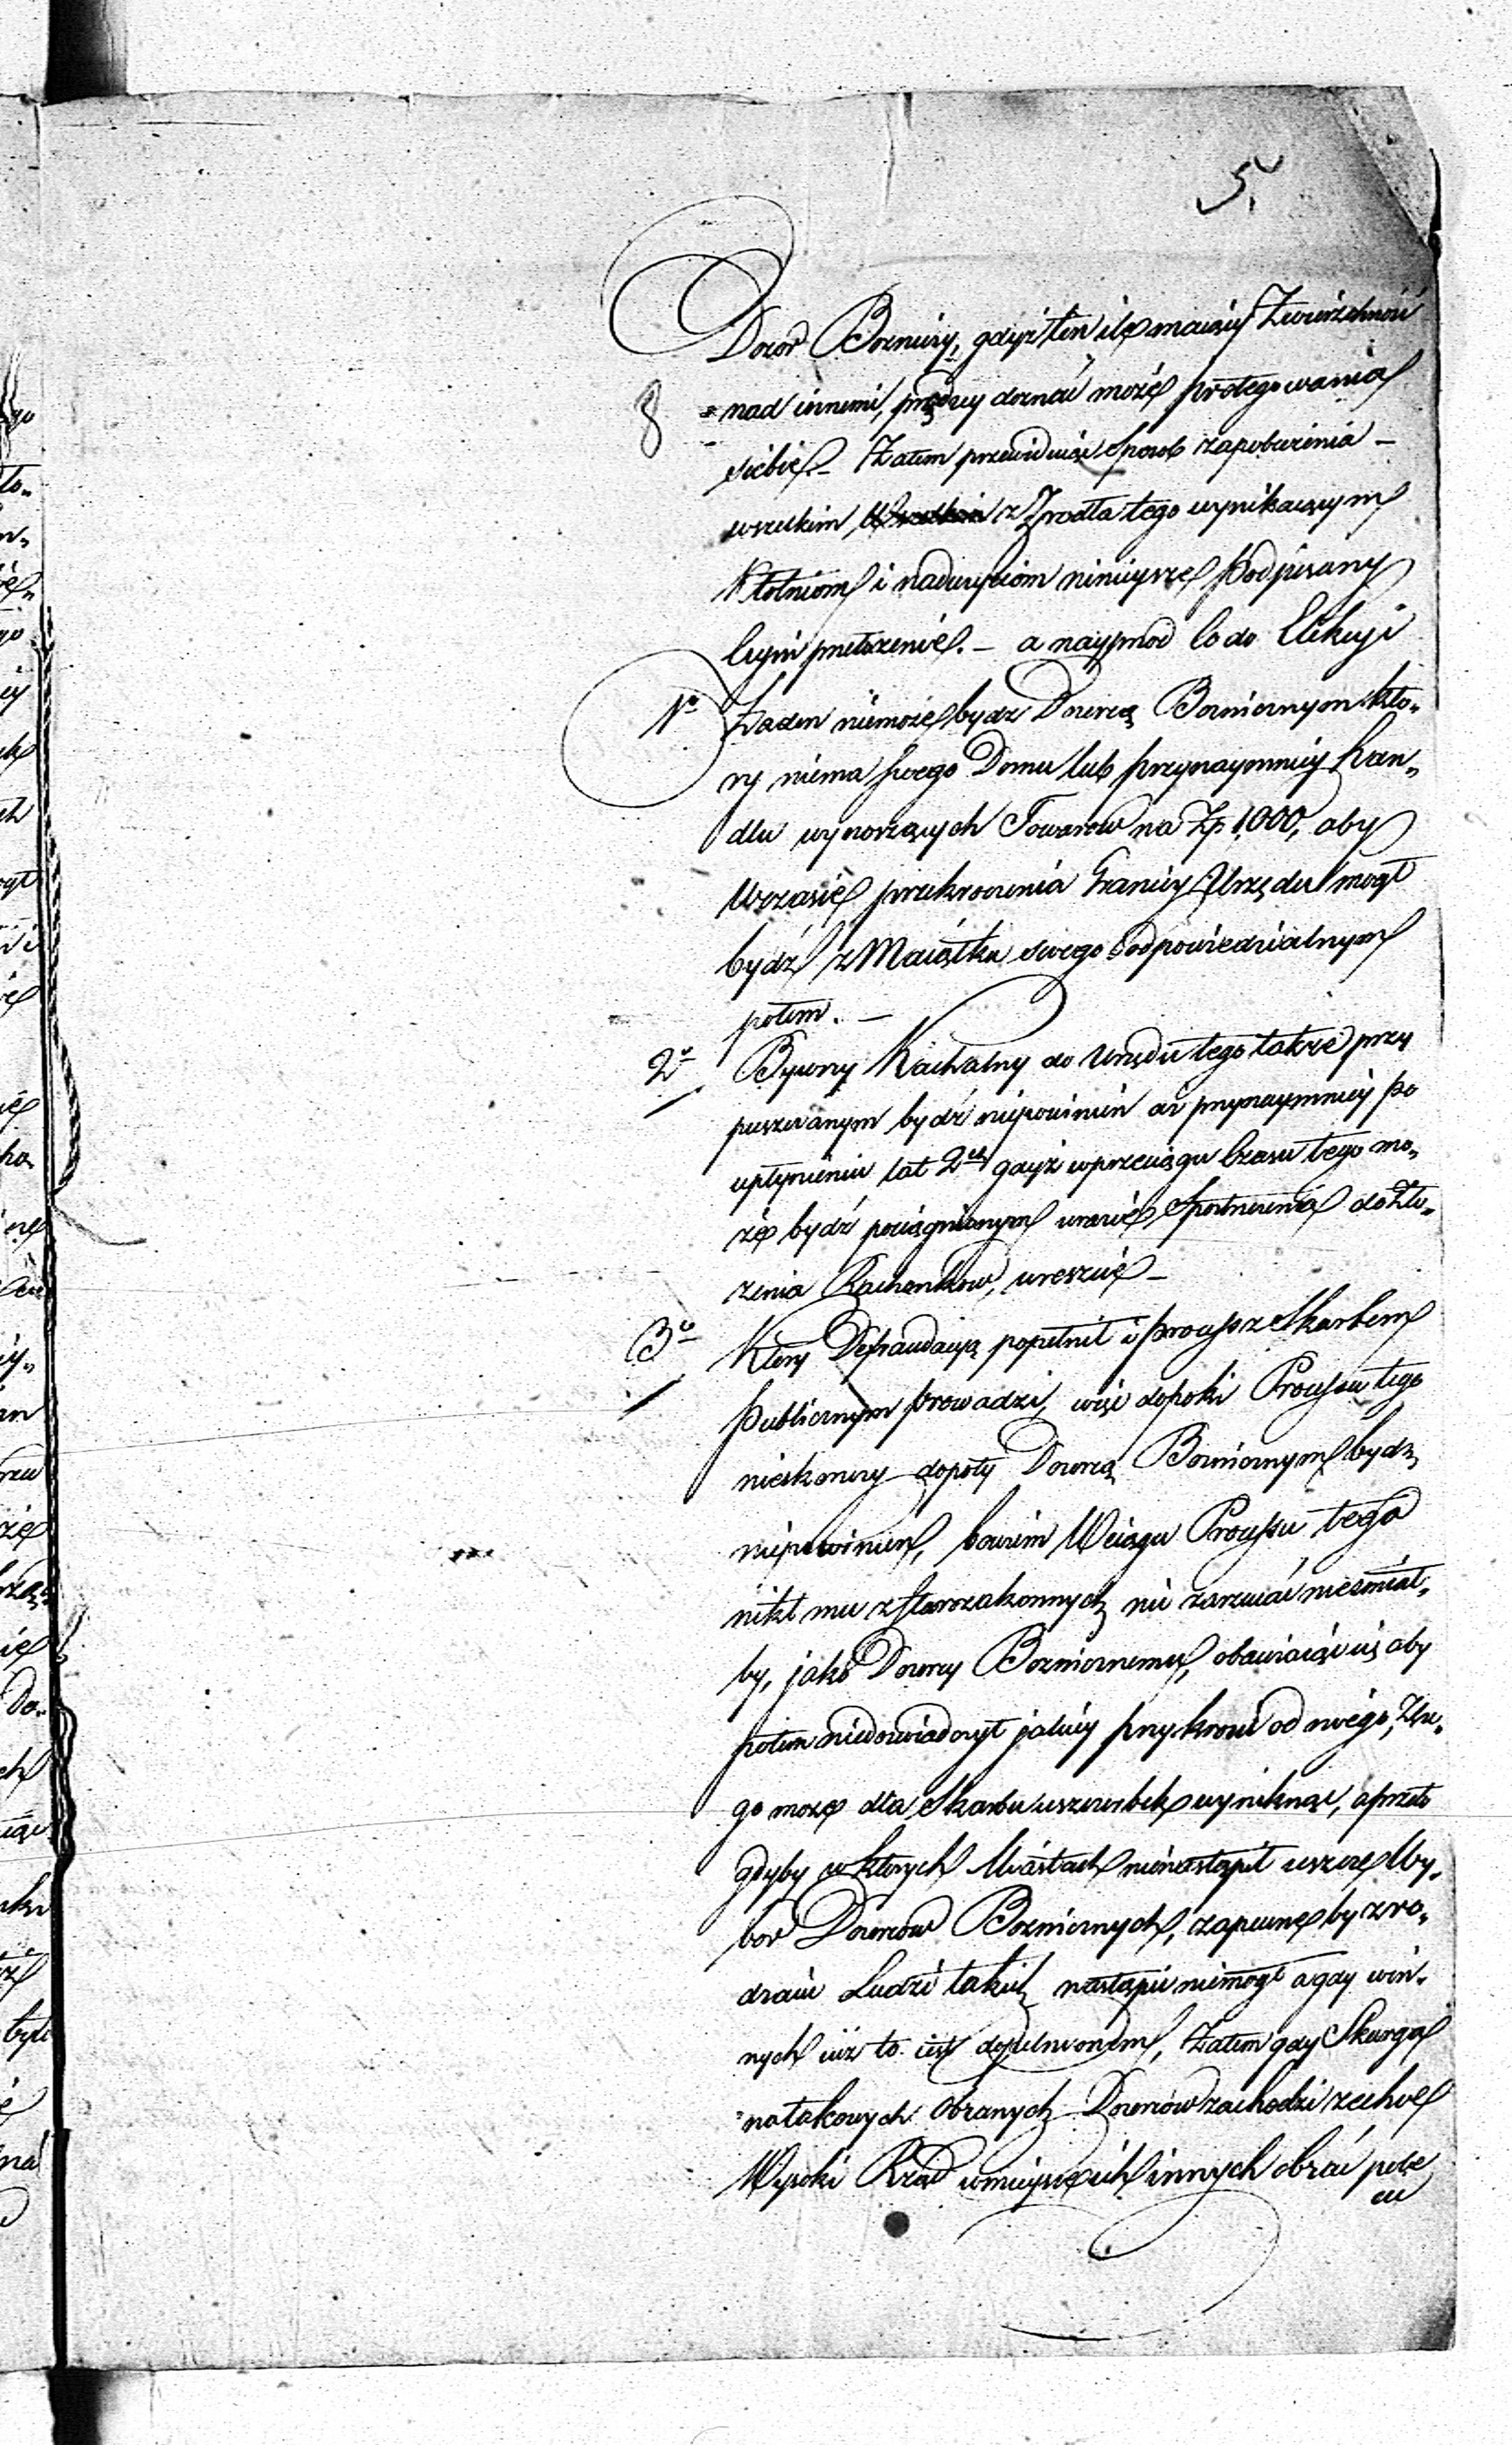 5.
Dozor Boznicy, gdyż ten ile maiący Zwierzchność
8 nad innemi, prędzey doznać może protegowania
siebie – Zatem przewidując Sposob zapobieżenia –
wszelkim z Zrodła tego wynikaiącym
Kłotniom i nadużyciom ninieysze Podpisany
czyni przełożenie. – a nayprzod co do Elekcyi
1o Zaden niemoże bydz Dozorcą Bozniczym kto-
ry niema swego Domu lub przynaymniey han-
dlu wynoszących Towarow na Zp. 1,000, aby
wrazie przekroczenia Granicy Urzędu mogł
bydź z Maiątku swego odpowiedzialnym
potem. –
2o Bywszy Kachalny do Urzędu tego także przy
puszczanym bydź niepowinien az przynaymniey po
upłynieniu lat 2ch gdyż wprzeciągu Czasu tego mo-
że bydź pociągnionym wrazie Spostrzeżenia do Zło-
żenia Rachunkow, wreszcie –
3o Ktory Defraudacyą popełnił i process z Skarbem
Publicznym prowadzi, więc dopoki Processu tego
nieskonczy dopoty Dozorcą Bozniczym bydz
niepowinien, bowiem Wciągu Processu tego
nikt mu z starozakonnych nic zarzucać nieśmiał-
by, jako Dozorcy Bozniczemu, obawiaiąc się aby
potem niedoswiadczył jakiey przykrości od niego, Z cze-
go może dla Skarbu uszczerbek wyniknąć, a przeto
gdyby w ktorych Miastach nienastąpił ieszcze Wy-
bor Dozorcow Bozniczych, zapewne by z ro-
dzaiu Ludzi takich nastąpić niemogł a gdy w in-
nych iuż to iest dopełnionem, Zatem gdy Skarga
na takowych Obranych Dozorców zachodzi zechce
Wysoki Rząd wmieysce ich innych obrać pole
cić